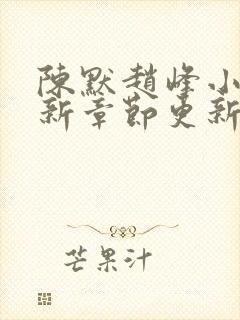 陳默趙峰小
新章節更新
芒果汁